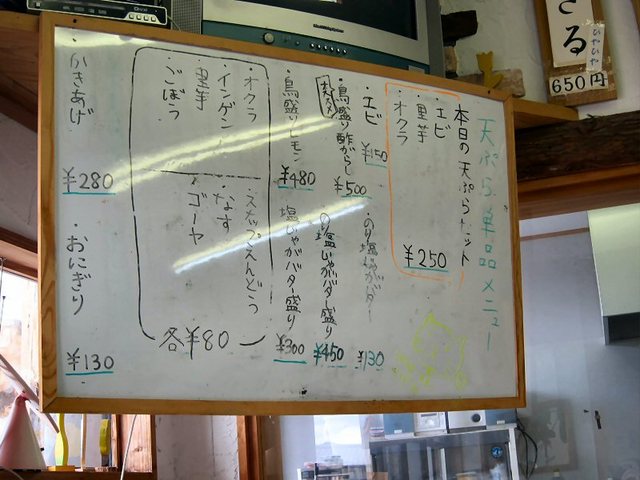 天ぷら単品メニュー
本日の天ぷらセット
エビ
里芋
オクラ
¥250
エビ ¥150
のり塩じゃがバター ¥130
おすすめ
鳥盛り酢がらし ¥500
のり塩じゃがバター盛り ¥450
鳥盛りレモン ¥480
塩じゃがバター盛り ¥300
オクラ
インゲン
里芋
ごぼう
スナップえんどう
なす
ゴーヤ
各¥80
かきあげ ¥280
おにぎり ¥130
ざる
ひやひや
650円